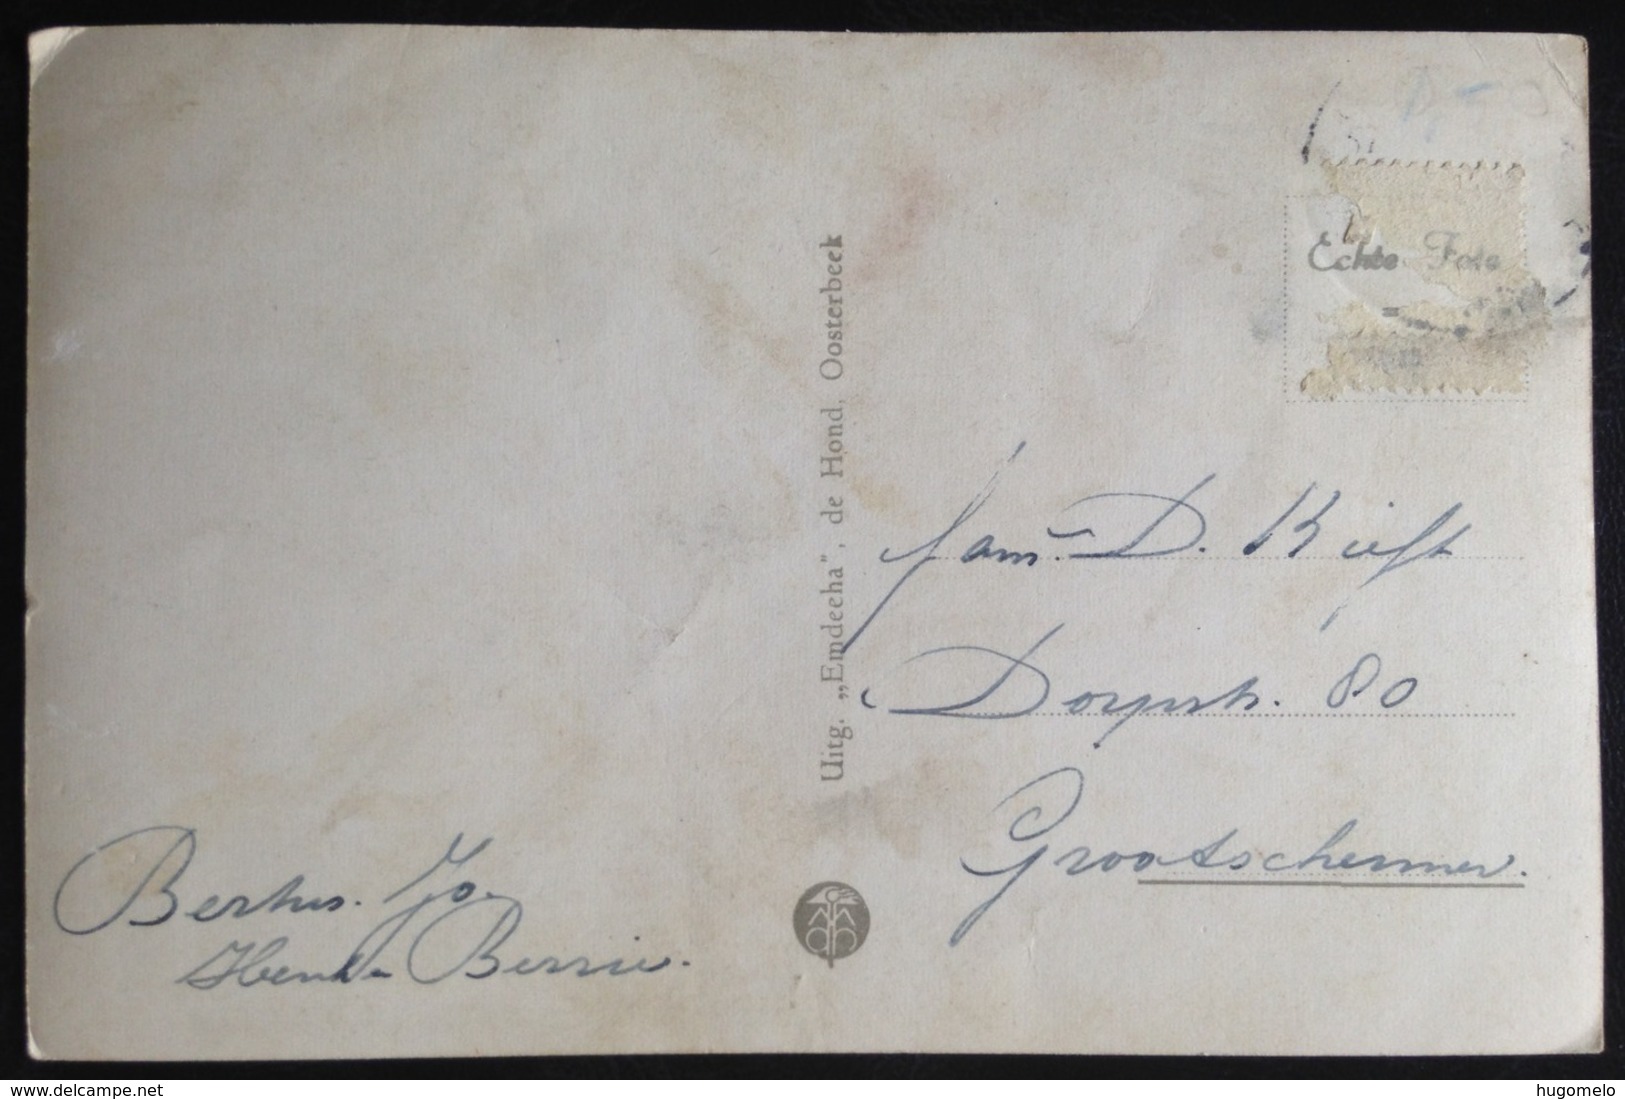 Echte Foto
Uitg. „Emdeeha", de Hond, Oosterbeek
Fam. D. Kieft
Dorpstr. 80
Grootschermer.
Bertus. Jo.
Henk. Bennie.
delcampe.net
hugomelo